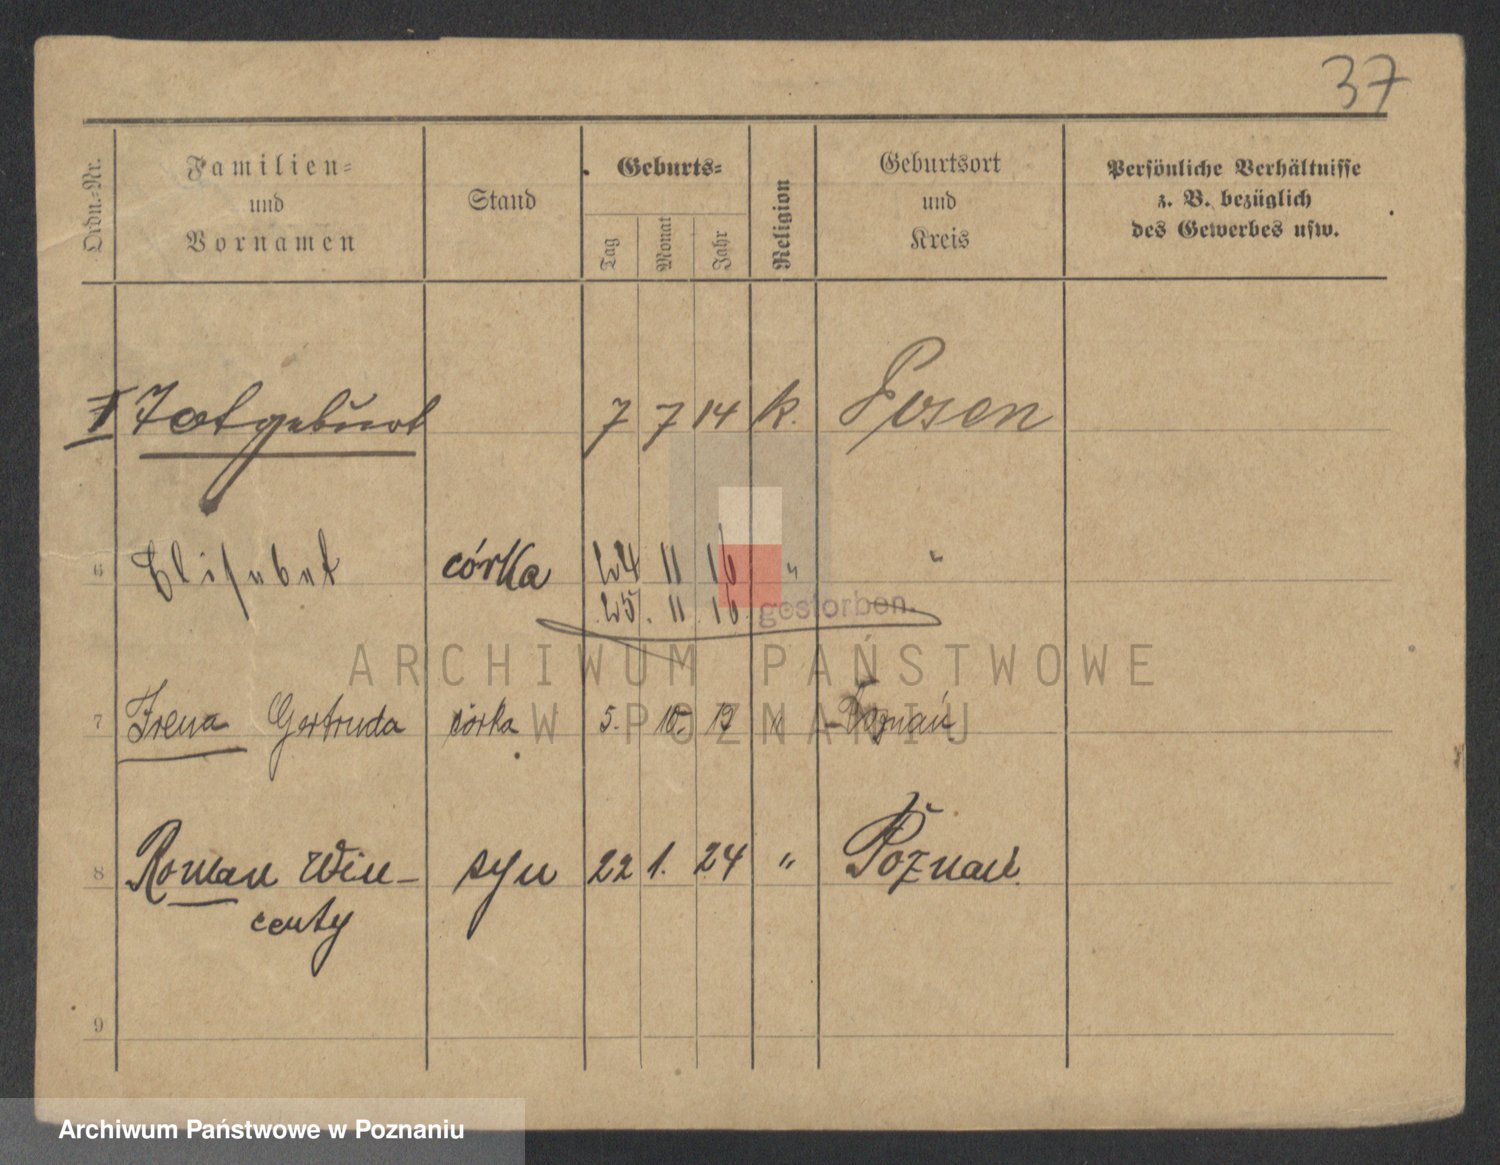 37
Ordn.-Nr. Familien- und Vornamen Stand Geburts- Tag Monat Jahr Religion Geburtsort und Kreis Persönliche Verhältnisse z. B. bezüglich des Gewerbes usw.
Totgeburt 7 7 14 k. Posen
6 Elisabet córka 24 11 16 " "
25. 11 16 gestorben.
ARCHIWUM PAŃSTWOWE
7 Irena Gertruda córka 5. 10. 19 Poznań
W POZNANIU
8 Roman Win- syn 22 1. 24 " Poznań
centy
9
Archiwum Państwowe w Poznaniu